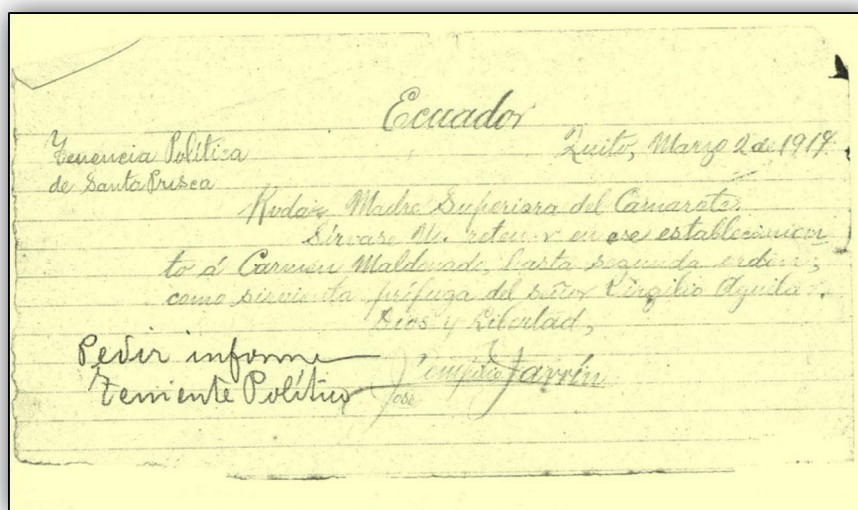 Ecuador
Tenencia Política
de Santa Prisca
Quito, Marzo 2 de 1917.
Rvda. Madre Superiora del Camarote.
Sírvase U. retener en ese establecimien
to á Carmen Maldonado, hasta segunda orden,
como sirvienta prófuga del señor Virgilio Aguila
Dios y Libertad,
José Jarrín
Pedir informe
Teniente Político